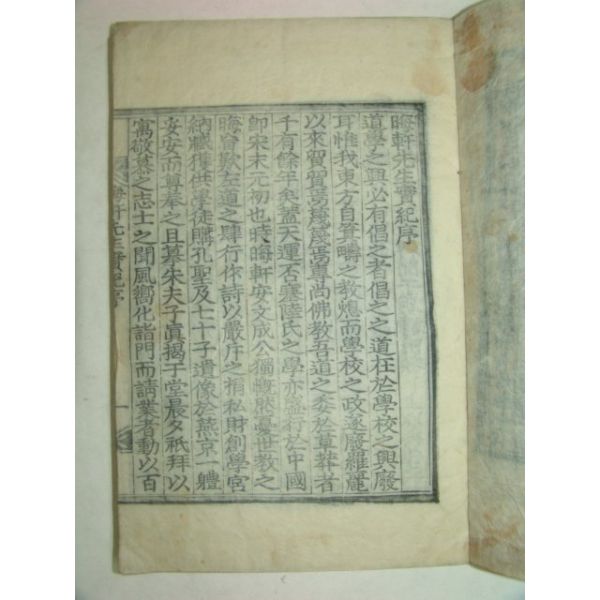 晦軒先生實紀序
道學之興必有倡之者倡之之道在於學校之興廢
耳惟我東方自箕疇之敎熄而學校之政遂廢羅麗
以來貿貿焉蔑蔑焉專尚佛敎吾道之委於草莽者
千有餘年矣蓋天運否塞陸氏之學亦盛行於中國
卽宋末元初也時晦軒安文成公獨慨然憂世敎之
晦盲歎左道之肆行作詩以嚴斥之捐私財創學宮
納臧獲供學徒購孔聖及七十子遺像於燕京一軆
妥安而尊奉之且慕朱夫子眞揭于堂晨夕祇拜以
寓敬慕之志士之聞風嚮化諸門而請業者動以百
晦軒先生實紀序 一